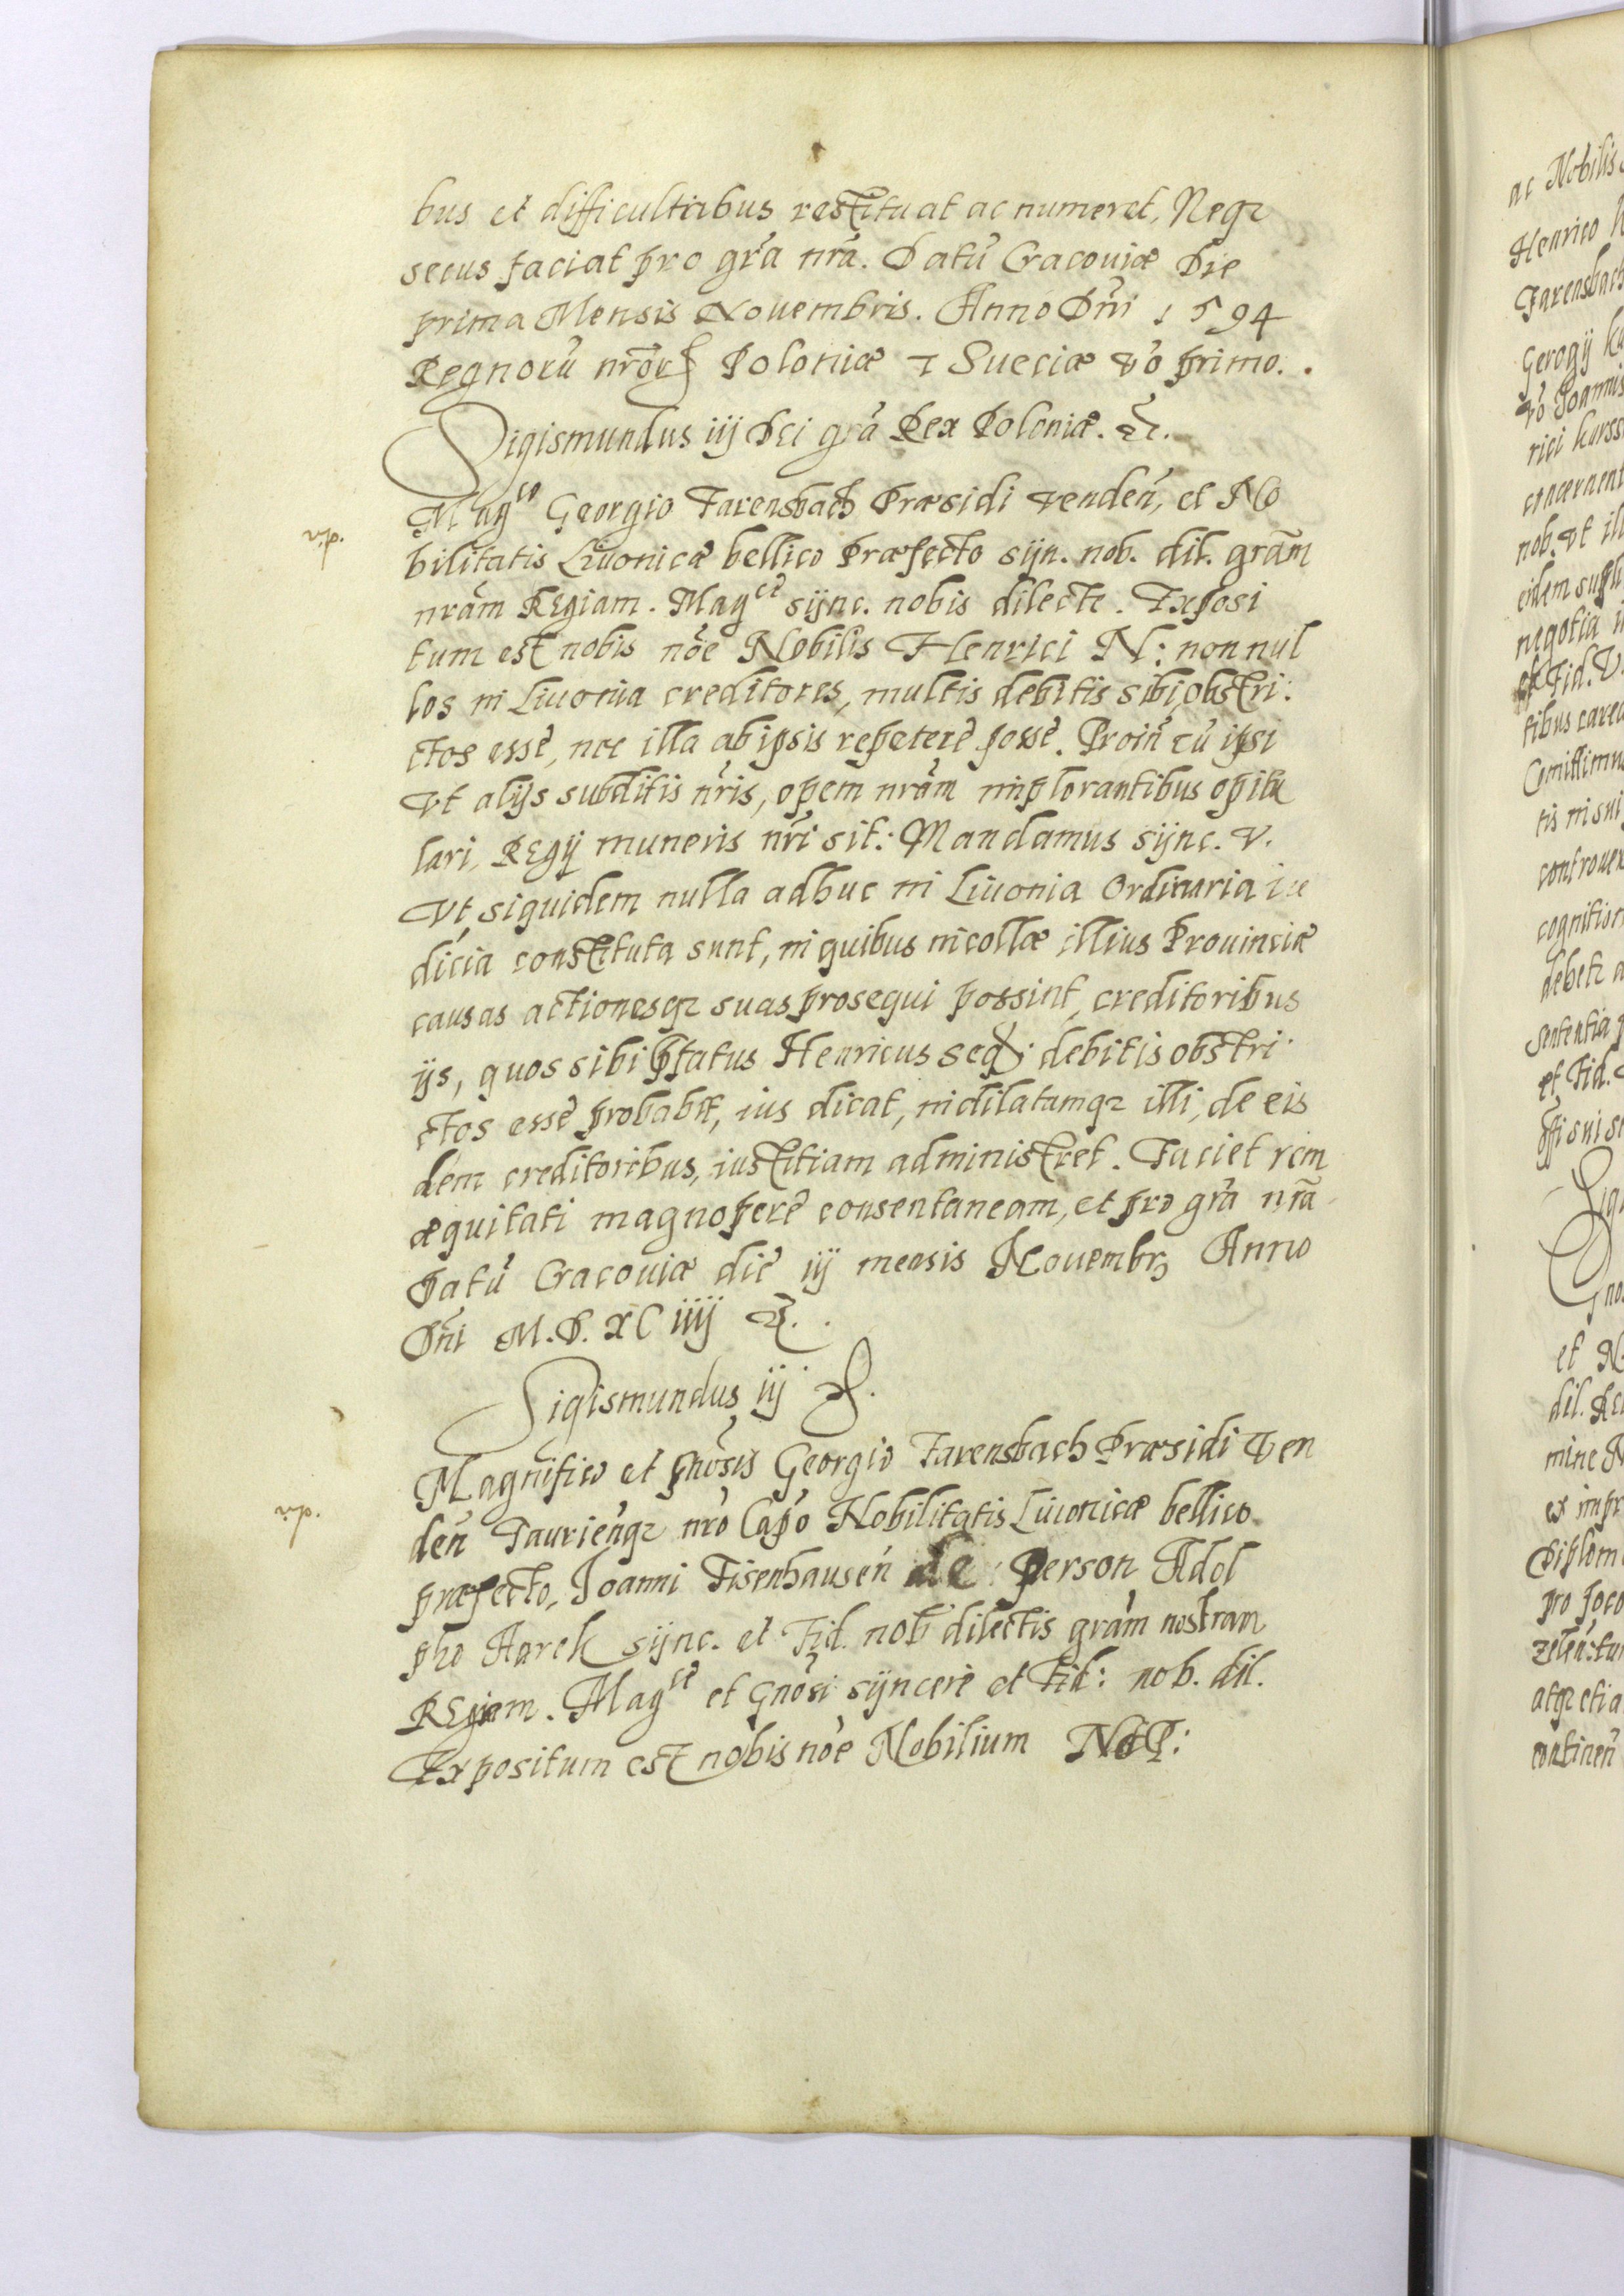 bus et difficultibus restituat ac numeret, Neq₃
secus faciat pro grã nrã. Datũ Cracouiæ Die
prima Mensis Nouembris. Anno Dñi 1594
Regnorũ nror̃ Poloniæ & Sueciæ vo primo.
Sigismundus iij Dei grã Rex Poloniæ. &.
Mag^co Georgio Farensbach Præsidi venden̄, et No
bilitatis Liuonicæ bellico Præfecto syn. nob. dil. grãm
nrãm REgiam. Mag^ce sync. nobis dilecte. Exposi
tum est nobis nõe Nobilis Henrici N: non nul
los in Liuonia creditores, multis debitis sibi obstri:
ctos esse, nec illa ab ipsis repetere posse. Proin̄ cũ ipsi
Vt alijs subditis nr̃is, opem nrãm implorantibus opitu
lari, REgij muneris nr̃i sit: Mandamus sync. V.
Vt, siquidem nulla adhuc in Liuonia Ordinaria iu
dicia constituta sunt, in quibus incollæ illius Prouinciæ
causas actionesq₃ suas prosequi possint, creditoribus
ijs, quos sibi Pfatus Henricus debitis obstri
ctos esse probabit, ius dicat, indilatamq₃ illi, de eis
dem creditoribus, iustitiam administret. Faciet rem
æquitati magnopere consentaneam, et pro grã nrã
Datũ Cracouiæ die iij mensis Nouembr₃ Anno
Dñi M.D.XC iiij &.
Sigismundus iij &.
Magnifico et Gnosis Georgio Farensbach Præsidi Ven
den̄ Taurien̄q₃ nr̃o Capõ Nobilitatis Liuonicæ bellico
præfecto, Joanni Tisenhausen̄ de Berson Adol
pho Aarck sync. et Fid. nob dilectis grãm nostram
REgiam. Mag^ce et Gnosi syncere et Fid: nob. dil.
Expositum est nobis nõe Nobilium N et P: